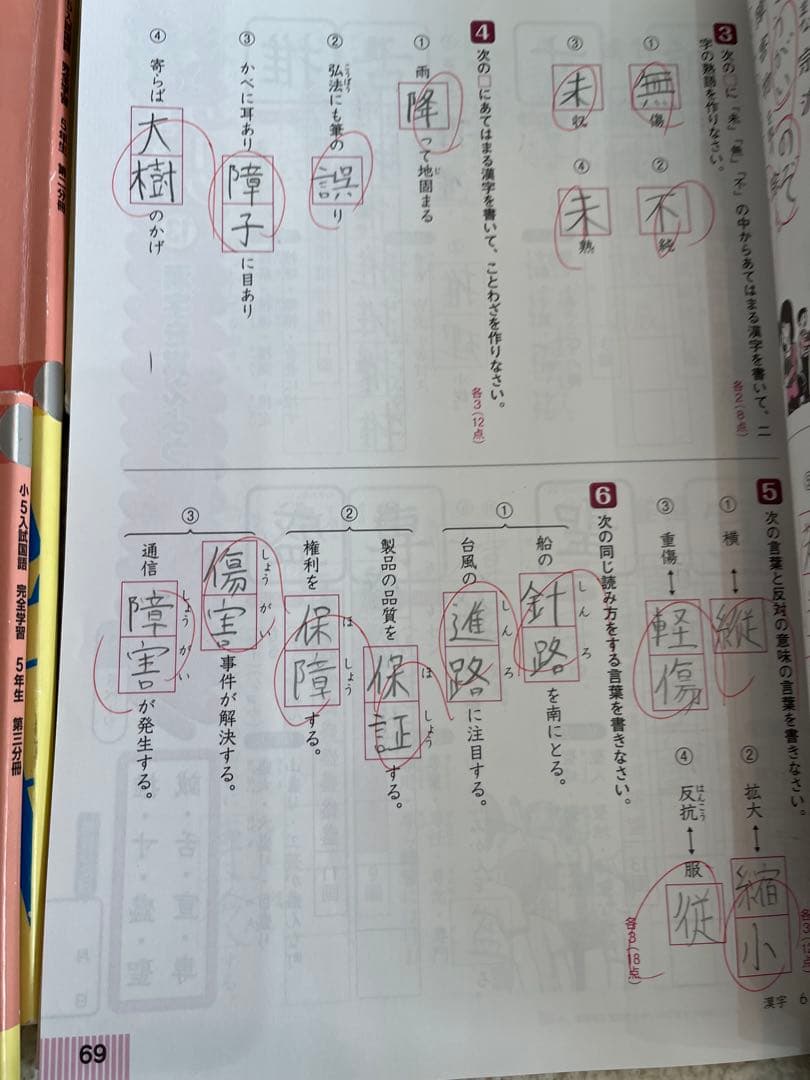 3 次の□に「未」「無」「不」の中からあてはまる漢字を書いて、二字の熟語を作りなさい。
各2(8点)
① 無傷
② 不純
③ 未収
④ 未熟
4 次の□にあてはまる漢字を書いて、ことわざを作りなさい。
各3(12点)
① 雨降って地固まる
じ
② 弘法にも筆の誤り
こうぼう
③ かべに耳あり障子に目あり
④ 寄らば大樹のかげ
5 次の言葉と反対の意味の言葉を書きなさい。
各3(12点)
① 横↔縦
② 拡大↔縮小
③ 重傷↔軽傷
④ 反抗↔服従
はんこう
6 次の同じ読み方をする言葉を書きなさい。
各3(18点)
① 船の針路を南にとる。
しんろ
台風の進路に注目する。
しんろ
② 製品の品質を保証する。
ほしょう
権利を保障する。
ほしょう
③ 傷害事件が解決する。
しょうがい
通信障害が発生する。
しょうがい
漢字 6
69
小5入試国語 完全学習 5年生 第三分冊
完全学習 5年生 第二分冊